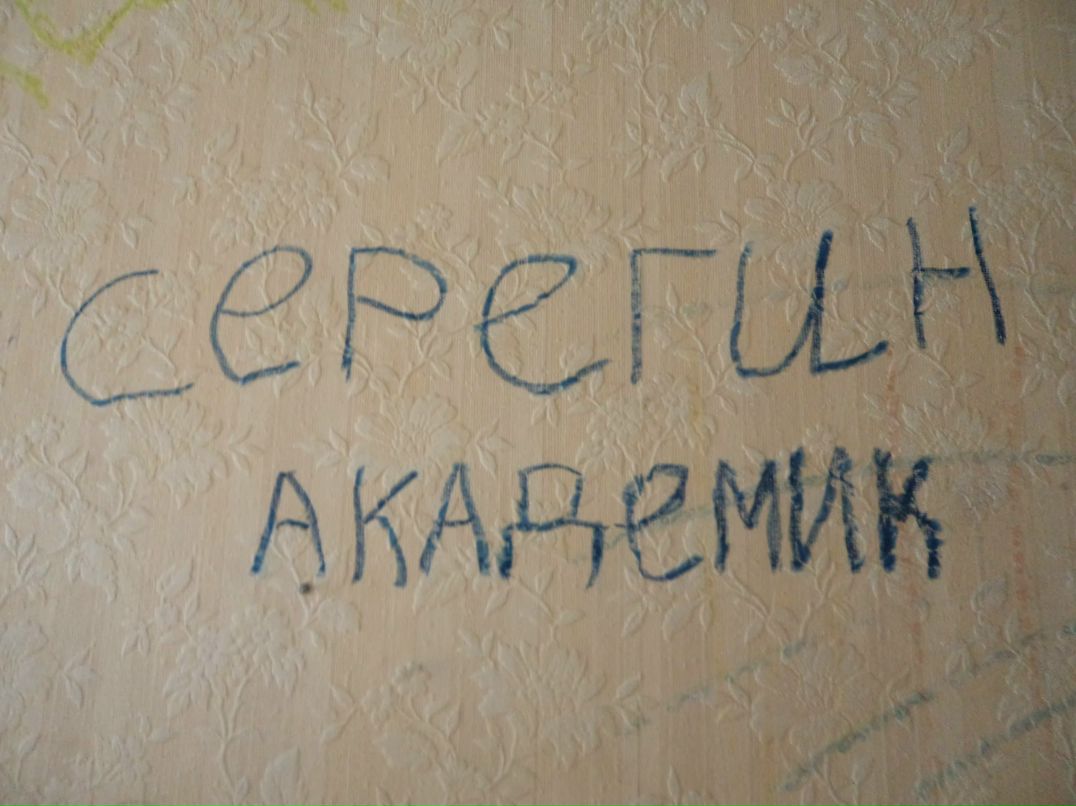 Серегин
АКАДеМИК